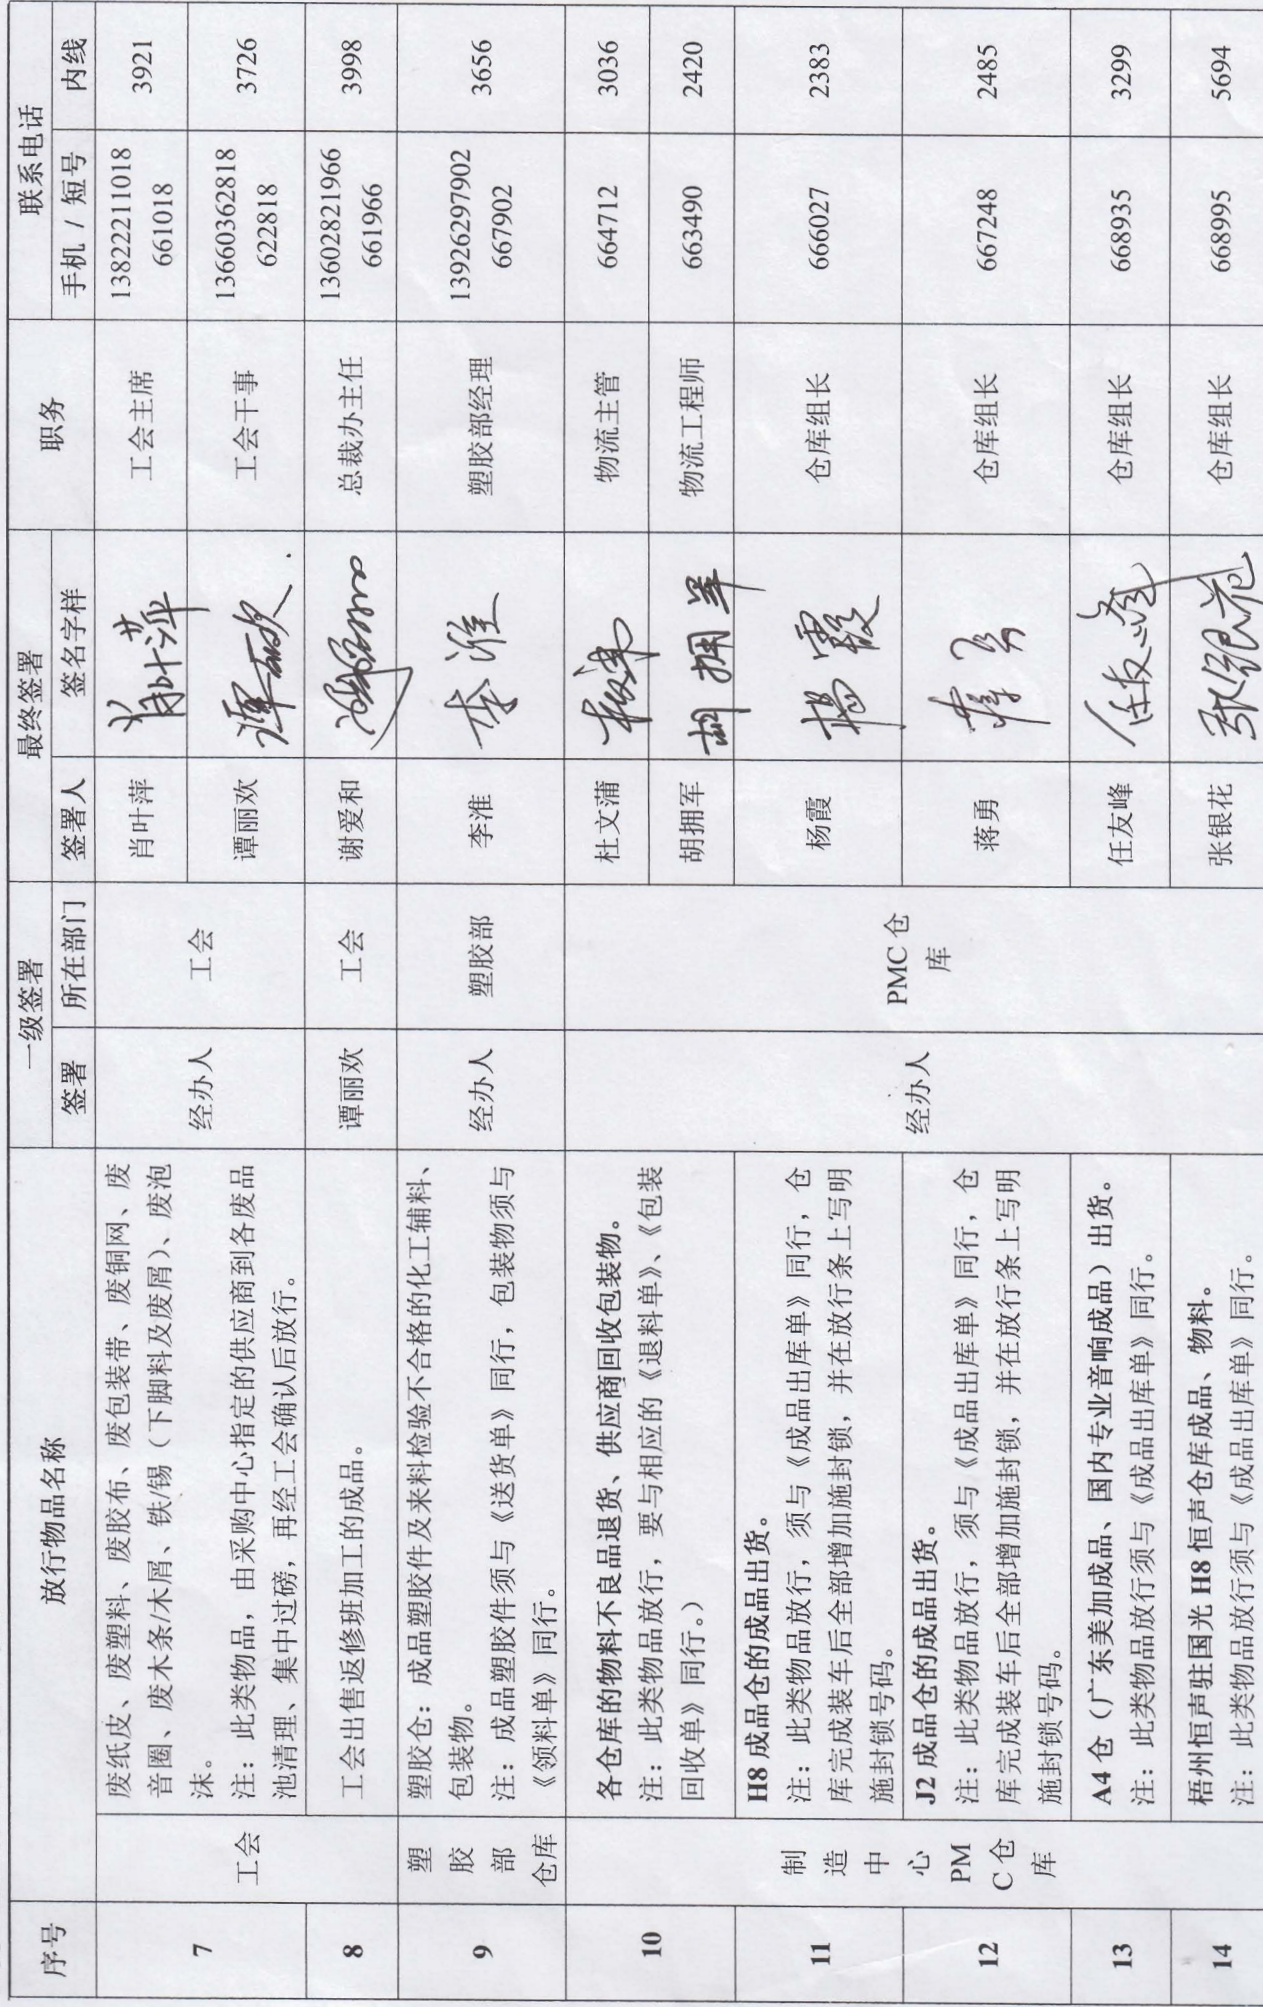 序号
放行物品名称
一级签署
最终签署
职务
联系电话
签署
所在部门
签署人
签名字样
手机 / 短号
内线
7
工会
废纸皮、废塑料、废胶布、废包装带、废铜网、废
音圈、废木条/木屑、铁/锡（下脚料及废屑）、废泡
沫。
注：此类物品，由采购中心指定的供应商到各废品
池清理、集中过磅，再经工会确认后放行。
经办人
工会
肖叶萍
肖叶萍
工会主席
13822211018
661018
3921
谭丽欢
谭丽欢
工会干事
13660362818
622818
3726
8
工会出售返修班加工的成品。
谭丽欢
工会
谢爱和
总裁办主任
13602821966
661966
3998
9
塑
胶
部
仓库
塑胶仓：成品塑胶件及来料检验不合格的化工辅料、
包装物。
注：成品塑胶件须与《送货单》同行，包装物须与
《领料单》同行。
经办人
塑胶部
李淮
李淮
塑胶部经理
13926297902
667902
3656
10
制
造
中
心
PM
C 仓
库
各仓库的物料不良品退货、供应商回收包装物。
注：此类物品放行，要与相应的《退料单》、《包装
回收单》同行。）
经办人
PMC 仓
库
杜文蒲
物流主管
664712
3036
胡拥军
胡拥军
物流工程师
663490
2420
11
H8 成品仓的成品出货。
注：此类物品放行，须与《成品出库单》同行，仓
库完成装车后全部增加施封锁，并在放行条上写明
施封锁号码。
杨霞
杨霞
仓库组长
666027
2383
12
J2 成品仓的成品出货。
注：此类物品放行，须与《成品出库单》同行，仓
库完成装车后全部增加施封锁，并在放行条上写明
施封锁号码。
蒋勇
仓库组长
667248
2485
13
A4 仓（广东美加成品、国内专业音响成品）出货。
注：此类物品放行须与《成品出库单》同行。
任友峰
任友峰
仓库组长
668935
3299
14
梧州恒声驻国光 H8 恒声仓库成品、物料。
注：此类物品放行须与《成品出库单》同行。
张银花
张银花
仓库组长
668995
5694